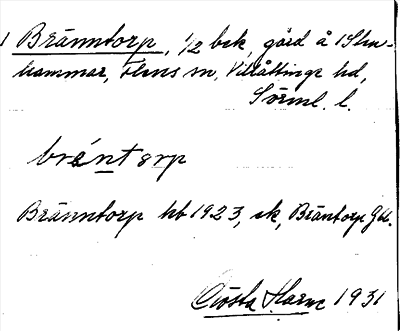 1 Bränntorp, 1/2 bck, gård å 1 Sten-
hammar, Flens sn, Villåttinge hd,
Sörml. l.
bränt orp
Bränntorp hb 1923, ek, Bräntorp Gbl.
Gösta Harne 1931